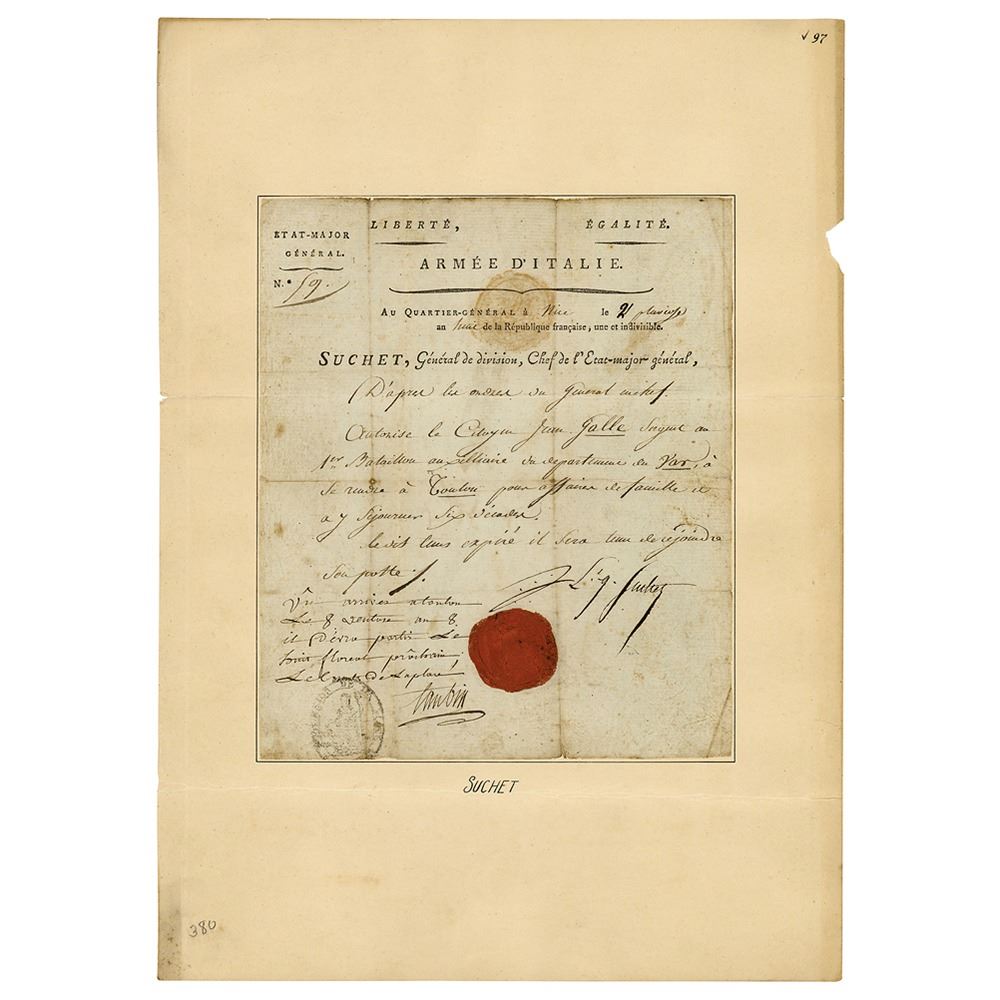 √ 97
LIBERTÉ, ÉGALITÉ.
ETAT-MAJOR
GÉNÉRAL.
N.° 59.
ARMÉE D'ITALIE.
AU QUARTIER-GÉNÉRAL à Nice le 2 pluviose
an huit de la République française, une et indivisible.
SUCHET, Général de division, Chef de l'Etat-major général,
D'après les ordres du Général en chef.
Autorise le Citoyen Jean Galle Sergent au
1er Bataillon auxilliaire du département du Var, à
Se rendre à Toulon pour affaires de famille et
a y Séjourner Six décades.
Le dit tems expiré il Sera tenu de réjoindre
Son poste
L. g. Suchet
Vu arrivée a toulon
Le 8 Ventose an 8
il devra partir Le
huit floreal prochain
Le de La place
SUCHET
380